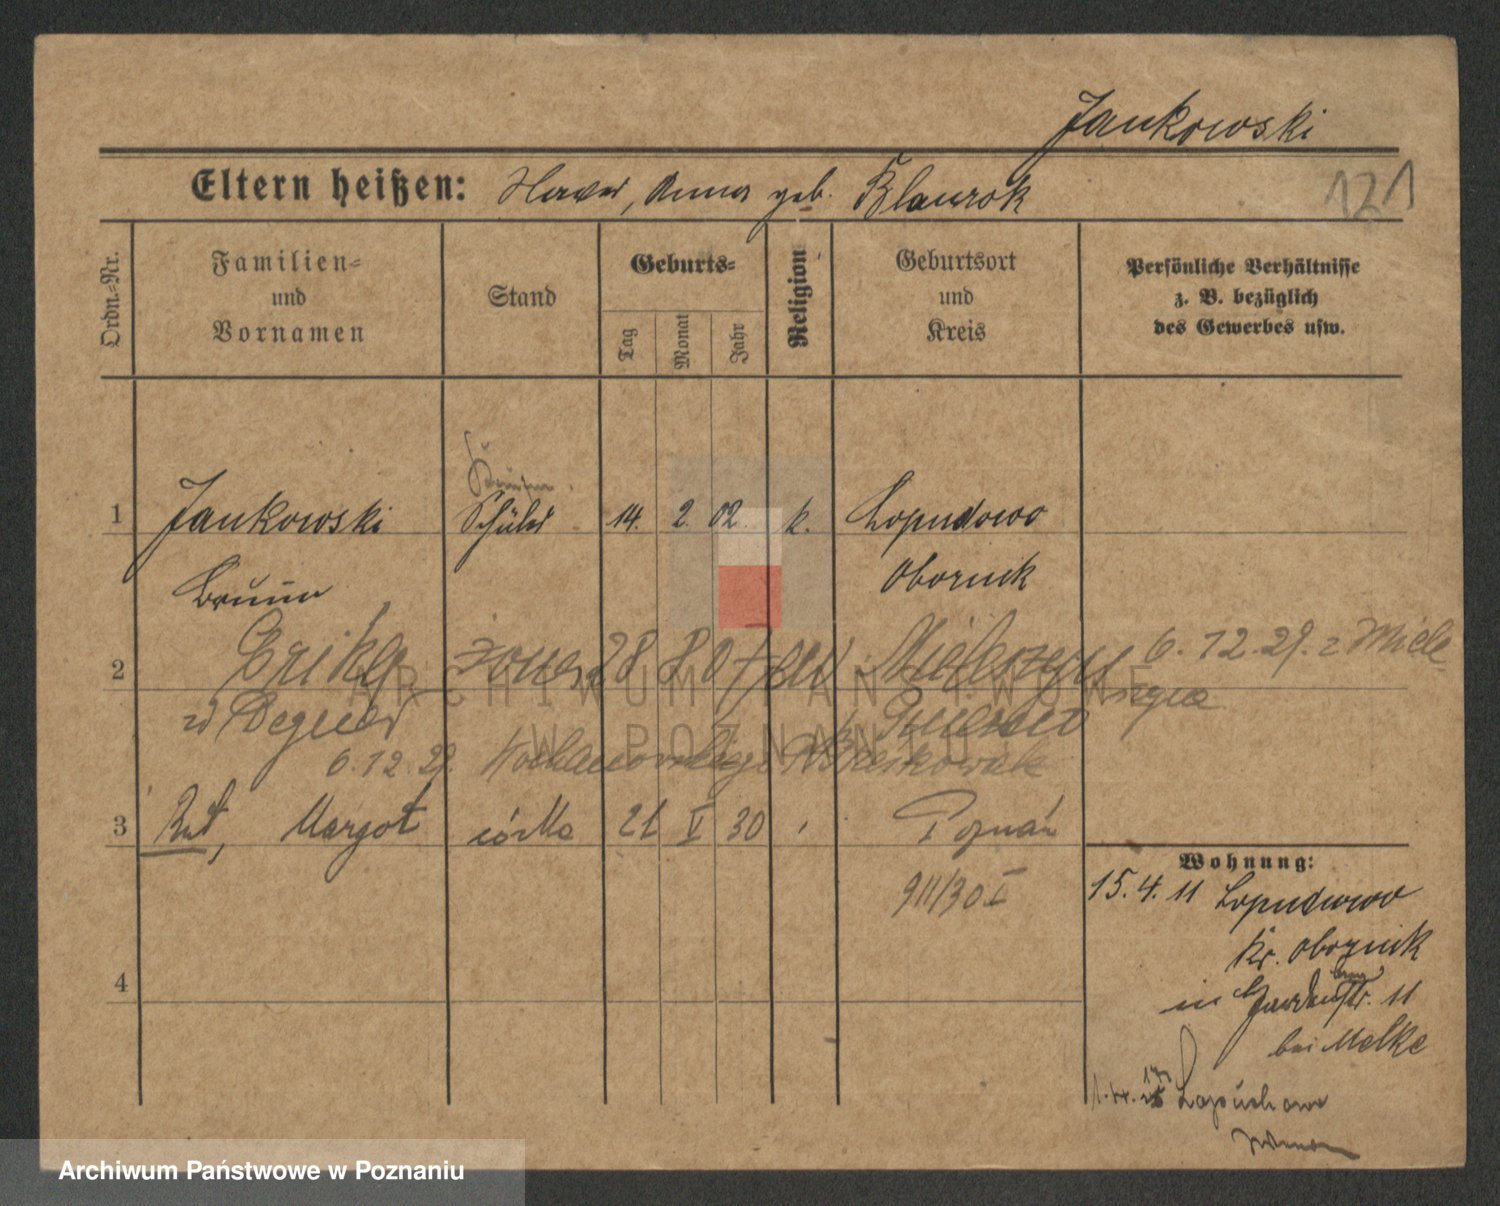 Jankowski
Eltern heißen: Anna geb. Blaurok
121
Ordn.=Nr.
Familien=
und
Vornamen
Stand
Geburts=
Tag
Monat
Jahr
Religion
Geburtsort
und
Kreis
Persönliche Verhältnisse
z. B. bezüglich
des Gewerbes usw.
1 Jankowski Schüler 14. 2. 02. k. Lopuchowo
Obornik
Bruno
2 Erika żona 28 8 07 ew Mieleszyn 6.12.29. z Miele-
szyna
zd Degner Gniezno
6.12.29.
3 Rut, Margot córka 21 V 30 Poznań
911/30 I
4
Wohnung:
15.4.11 Lopuchowo
Kr. Obornik
in Gartenstr. 11
bei Melke
Lopuchowo
ARCHIWUM PAŃSTWOWE
W POZNANIU
Archiwum Państwowe w Poznaniu